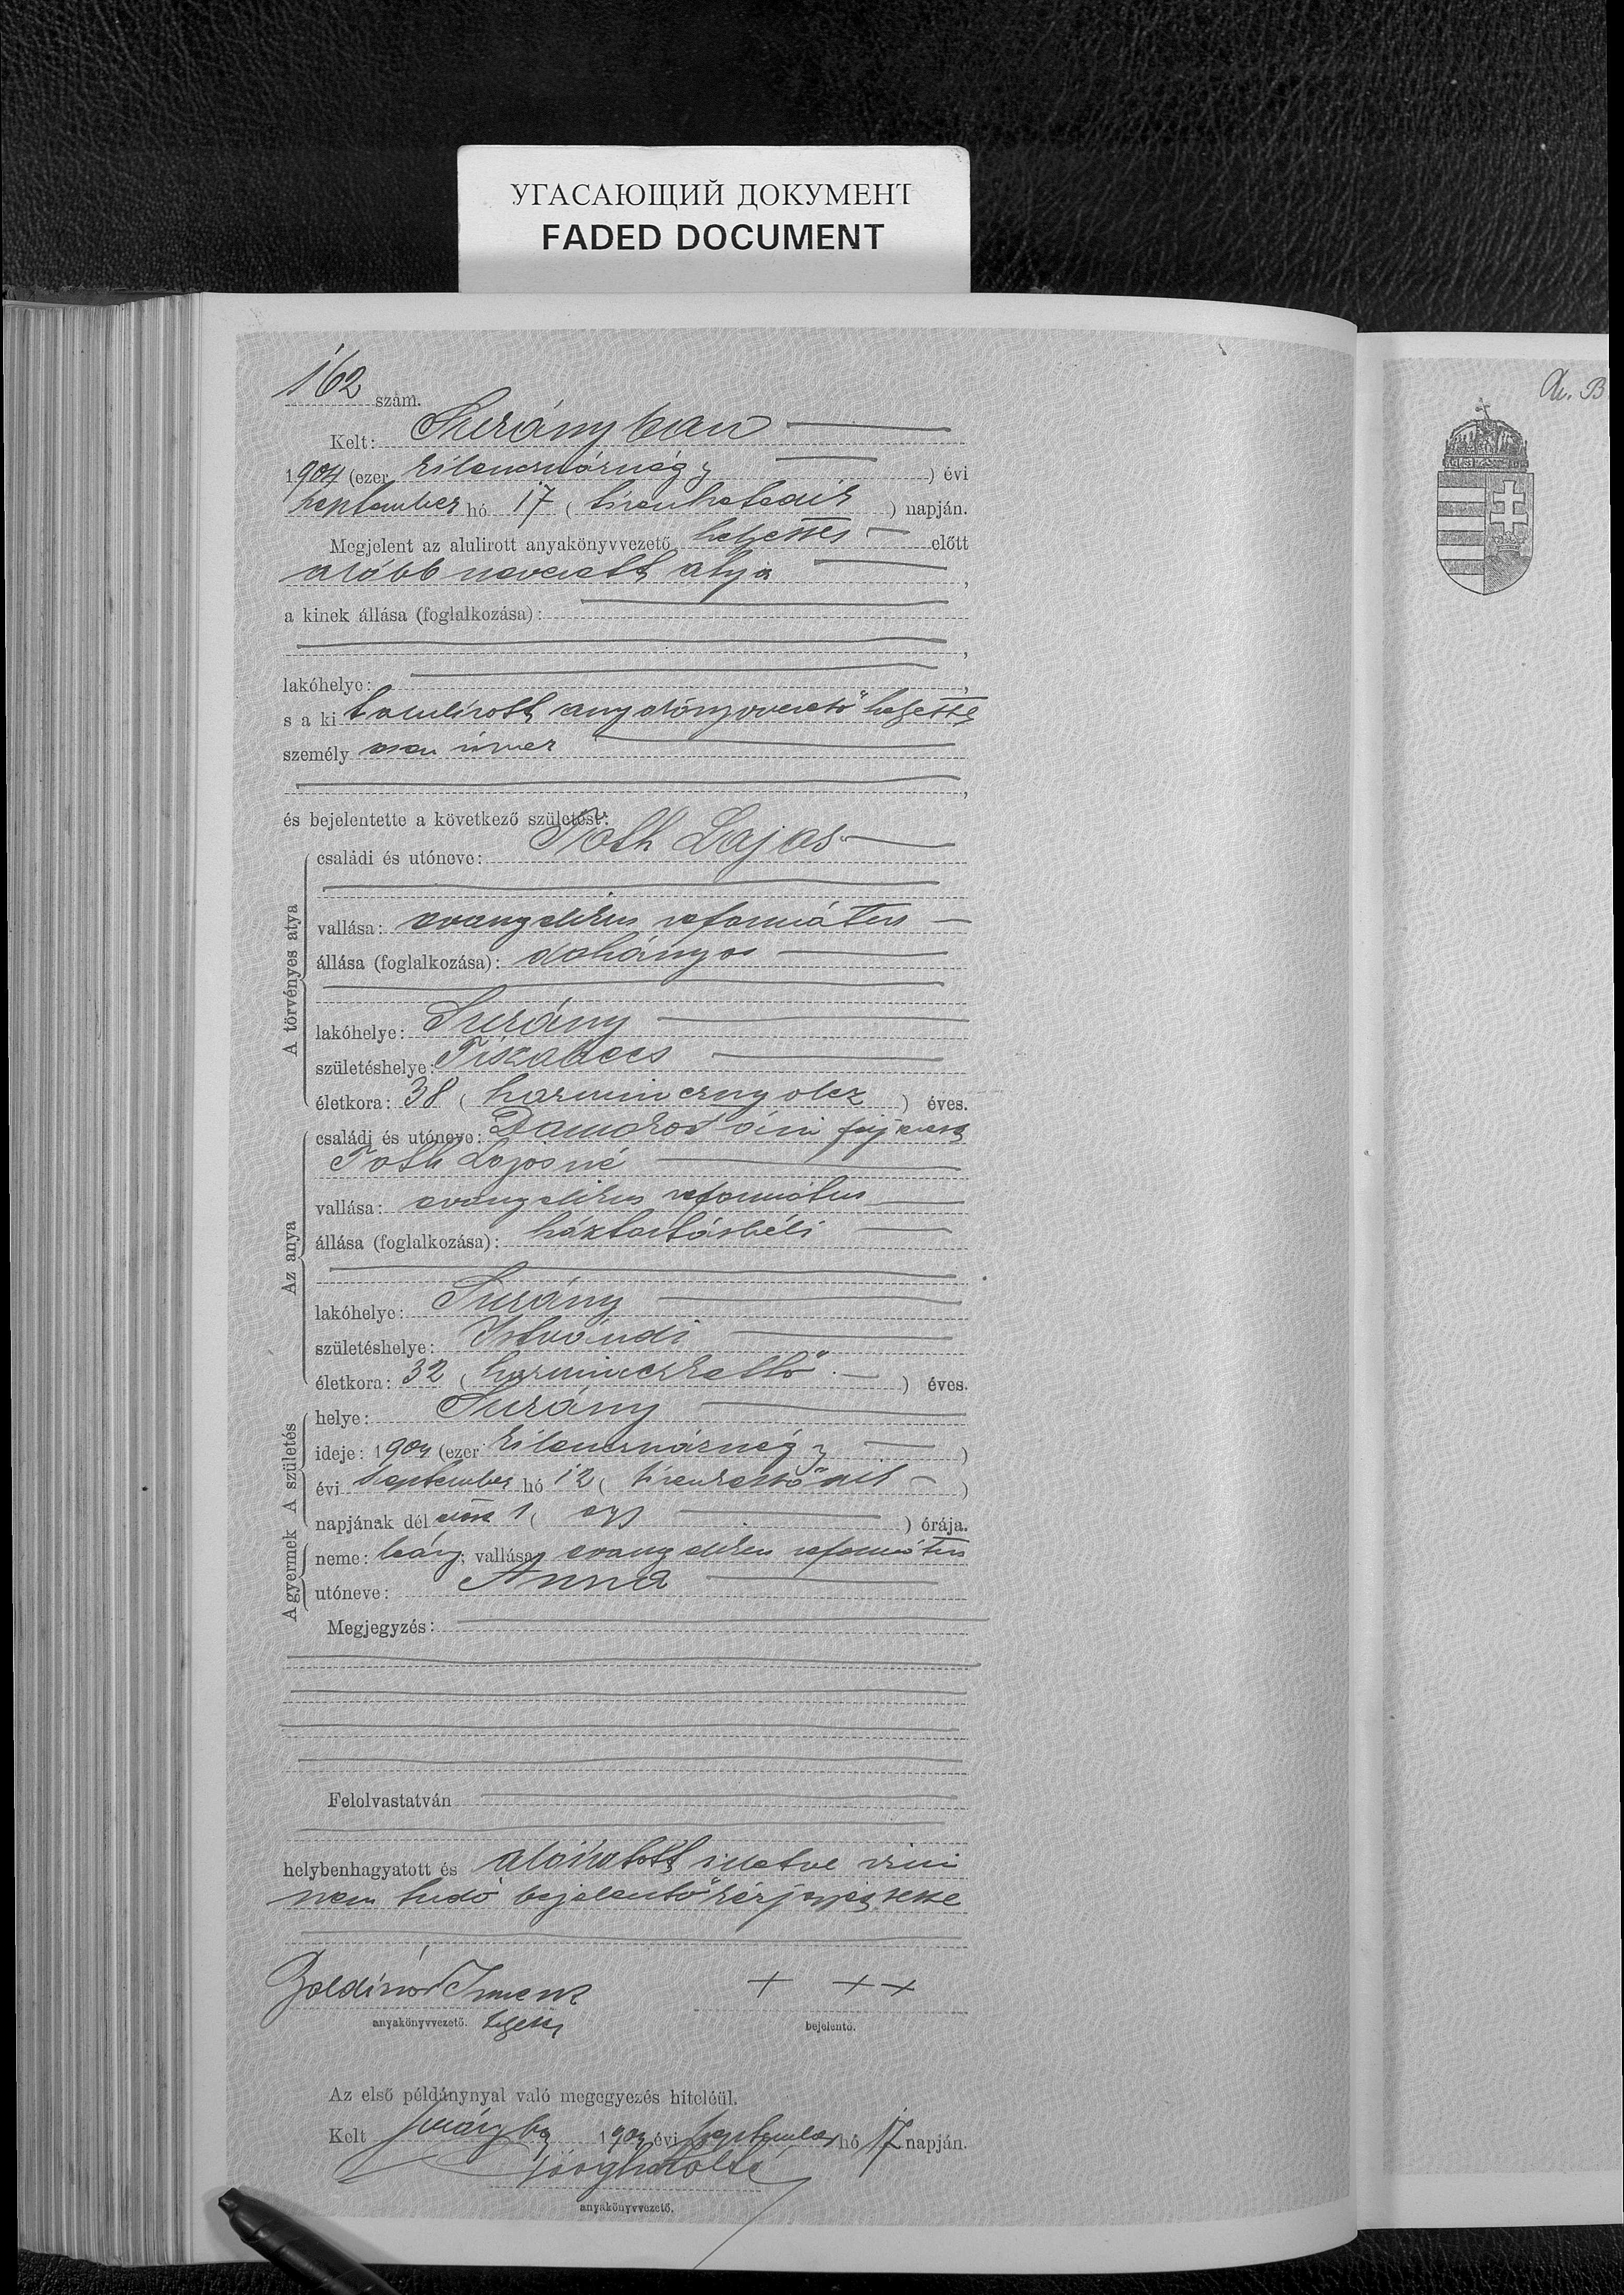 УГАСАЮЩИЙ ДОКУМЕНТ
FADED DOCUMENT
162 szám.
Kelt: Surányban
1904 (ezer kilenczszáznégy) évi
szeptember hó 17 (tizenhetedik) napján.
Megjelent az alulirott anyakönyvvezető helyettes előtt
alább nevezett atya,
a kinek állása (foglalkozása):
,
lakóhelye: ,
s a ki alulirott anyakönyvvezető helyettes
személy ismer
,
és bejelentette a következő születést:
A törvényes atya
családi és utóneve: Toth Lajos
vallása: evangelikus református
állása (foglalkozása): dohányos
lakóhelye: Surány
születéshelye: Tiszabecs
életkora: 38 (harmincznyolcz) éves.
Az anya
családi és utóneve:
Toth Lajosné
vallása: evangelikus református
állása (foglalkozása): háztartásbéli
lakóhelye: Surány
születéshelye: Istvándi
életkora: 32 (harminczkettő) éves.
A születés
helye: Surány
ideje: 1904 (ezer kilenczszáznégy)
évi szeptember hó 12 (tizenkettő)
napjának dél előtt 1 (egy) órája.
A gyermek
neme: leány; vallása: evangelikus református
utóneve: Anna
Megjegyzés:
Felolvastatván
helybenhagyatott és aláiratott illetve irni
nem tudó bejelentő kézjegyével
Imre + ++
anyakönyvvezető. helyettes bejelentő.
Az első példánynyal való megegyezés hiteléül.
Kelt 1904 évi szeptember hó 17 napján.
anyakönyvvezető.